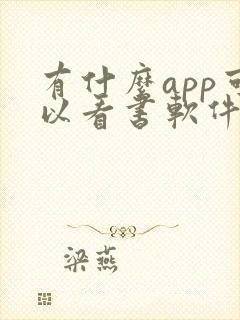 有什麼app可
以看書軟件
梁燕